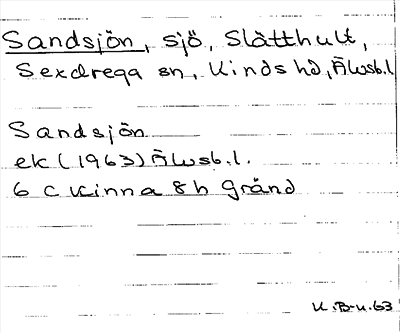 Sandsjön, sjö, Slätthult,
Sexdrega sn, Kinds hd, Älvsb.l
Sandsjön
ek (1963) Älvsb.l.
6 C Kinna 8h Gränd
K.Br-u.63